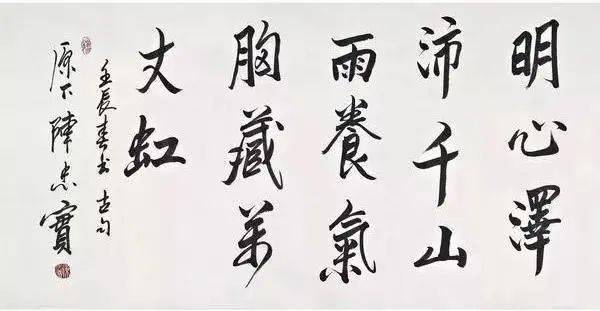 明心澤
沛千山
雨養氣
胸藏萬
丈虹
壬辰春书古句
原下陳忠實